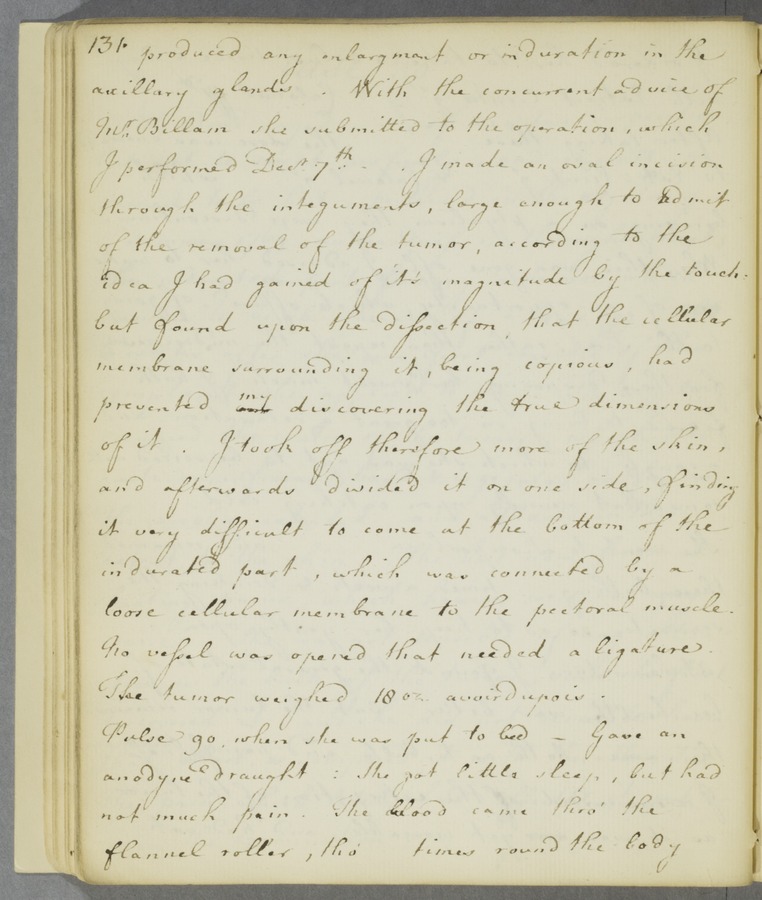 131. produced any enlargmant or induration in the
axillary glands . With the concurrent advice of
Mr. Billam she submitted to the operation, which
I performed Decr. 7th. . I made an oval incision
through the integuments, large enough to admit
of the removal of the tumor, according to the
idea I had gained of it's magnitude by the touch:
but found upon the dissection, that the cellular
membrane surrounding it, being copious, had
prevented my discovering the true dimensions
of it . I took off therefore more of the skin,
and afterwards divided it on one side, finding
it very difficult to come at the bottom of the
indurated part , which was connected by a
loose cellular membrane to the pectoral muscle.
No vessel was opened that needed a ligature.
The tumor weighed 18 oz. avoirdupois .
Pulse 90, when she was put to bed – Gave an
anodyne draught : She got little sleep, but had
not much pain. The blood came thro' the
flannel roller, tho' times round the body